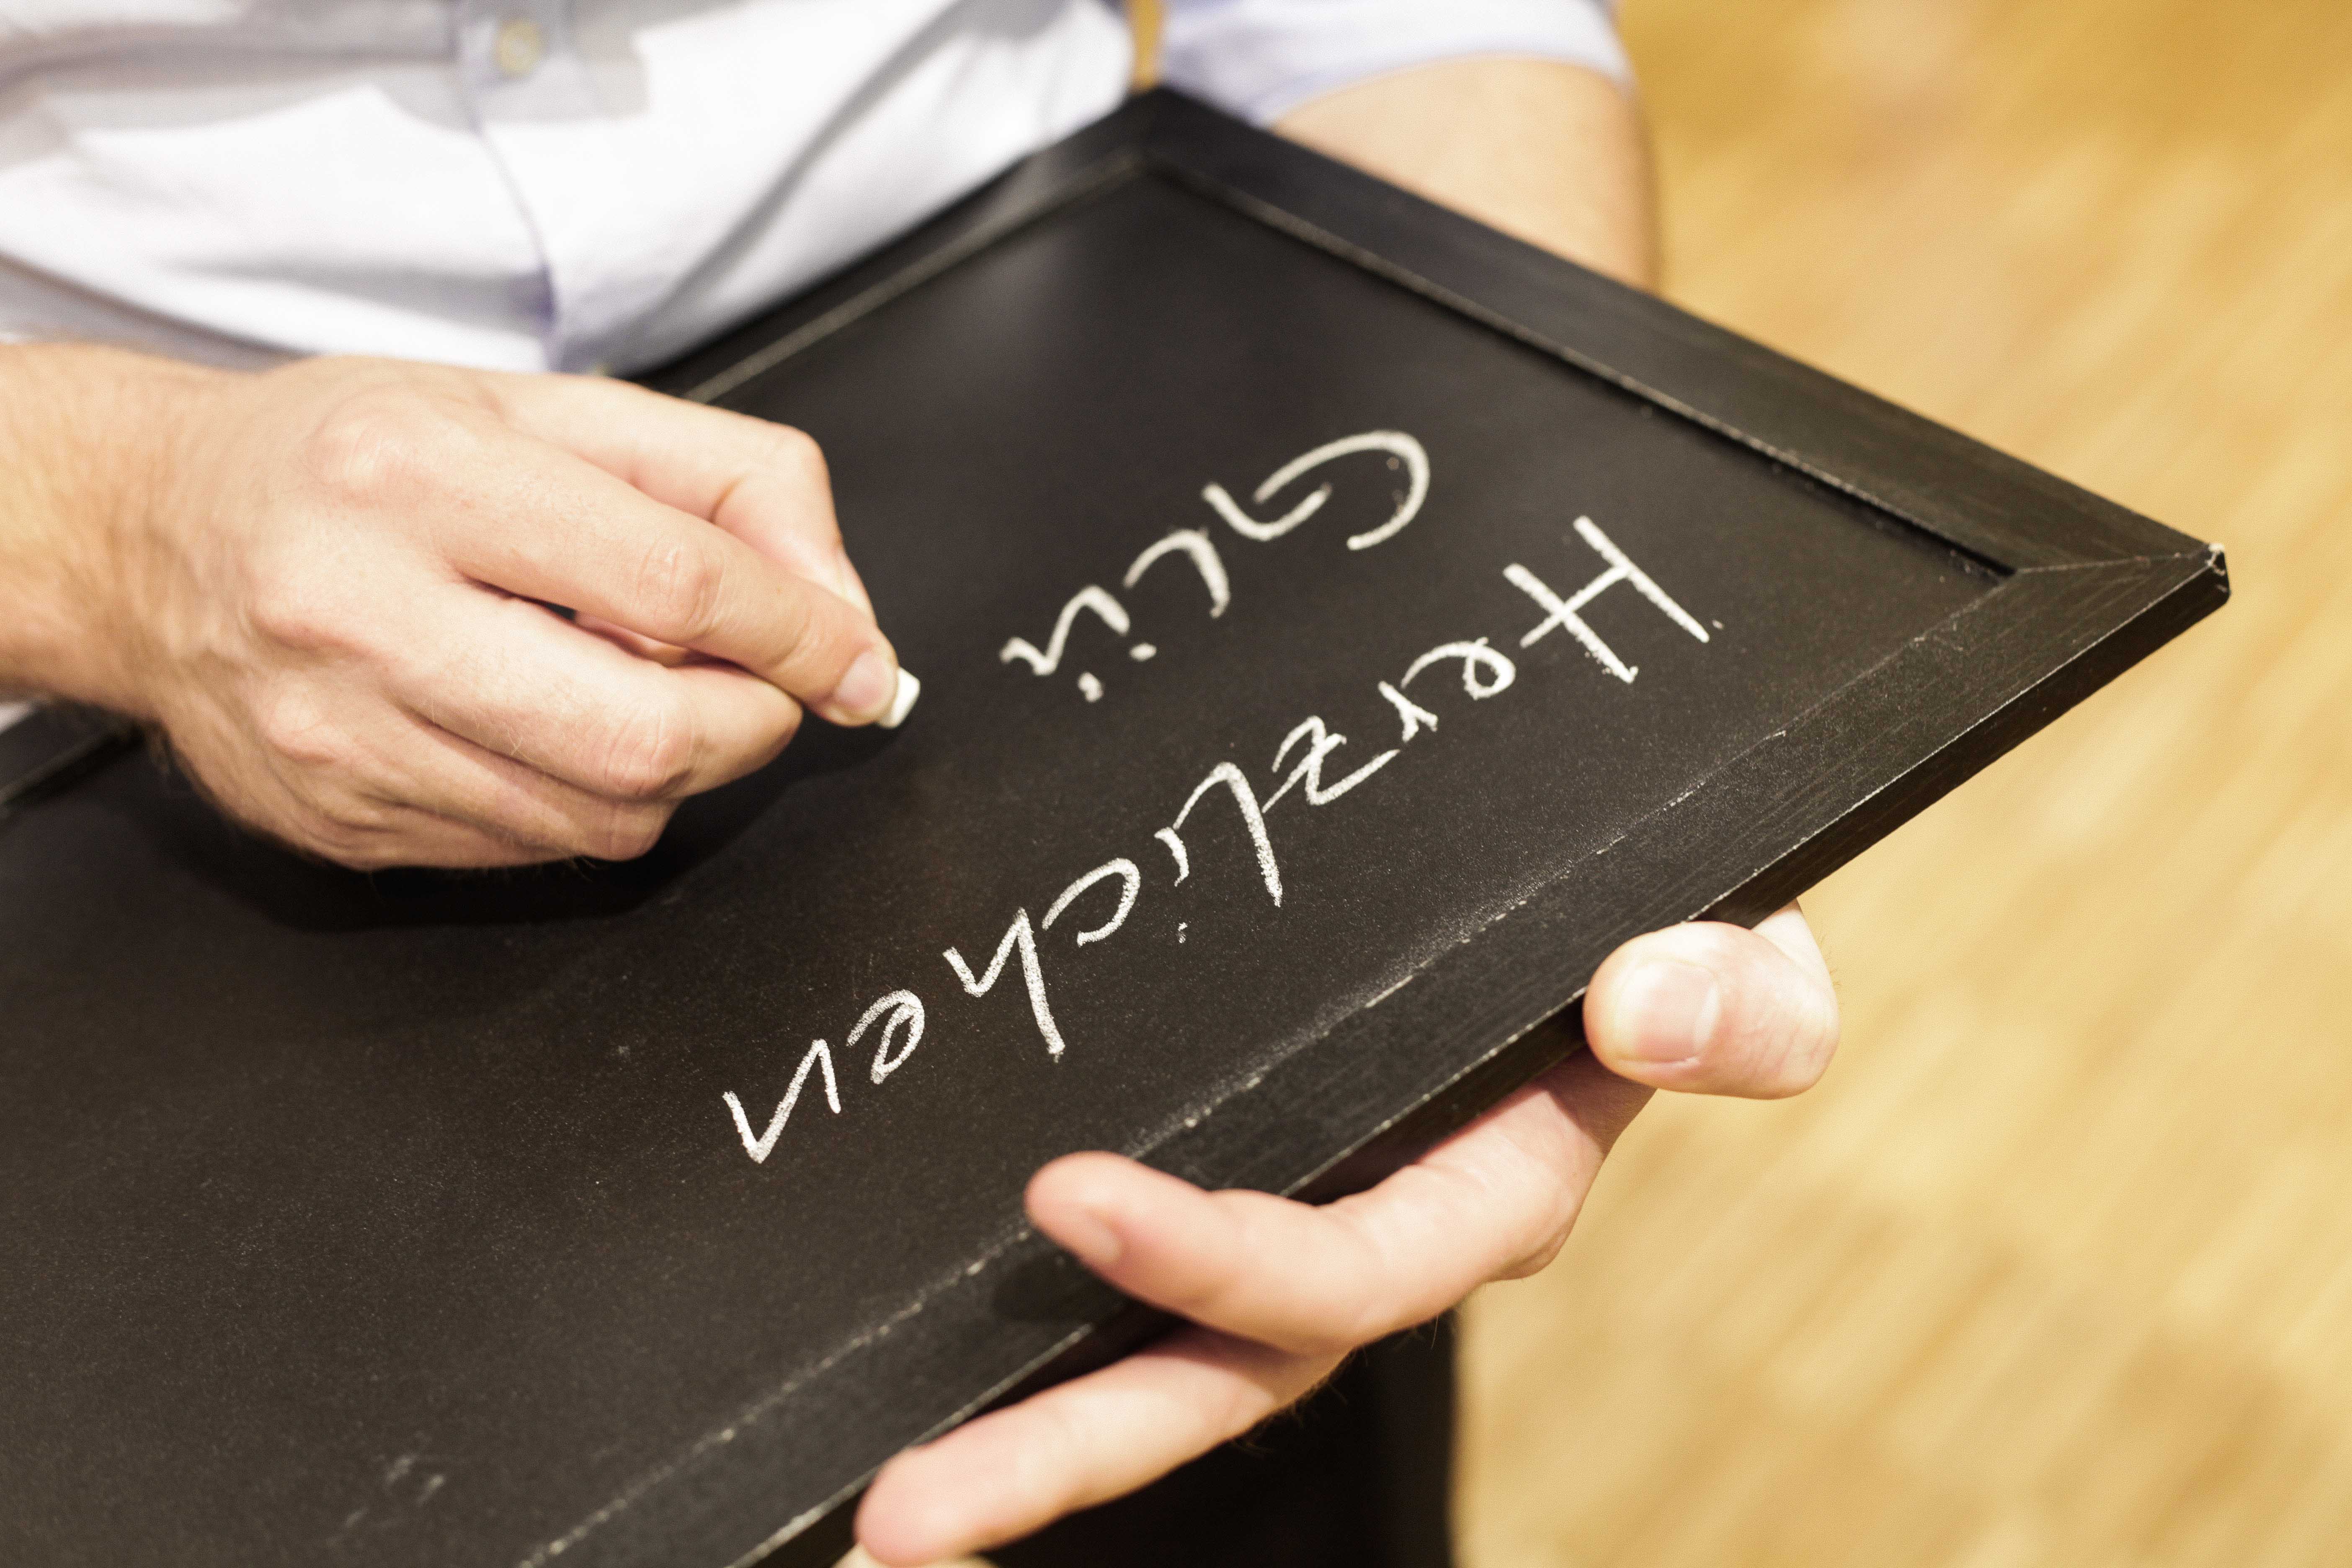 Herzlichen
Glü